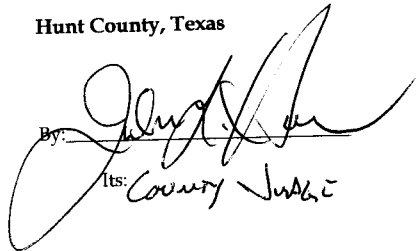 Hunt County, Texas
By:
Its: COUNTY JUDGE